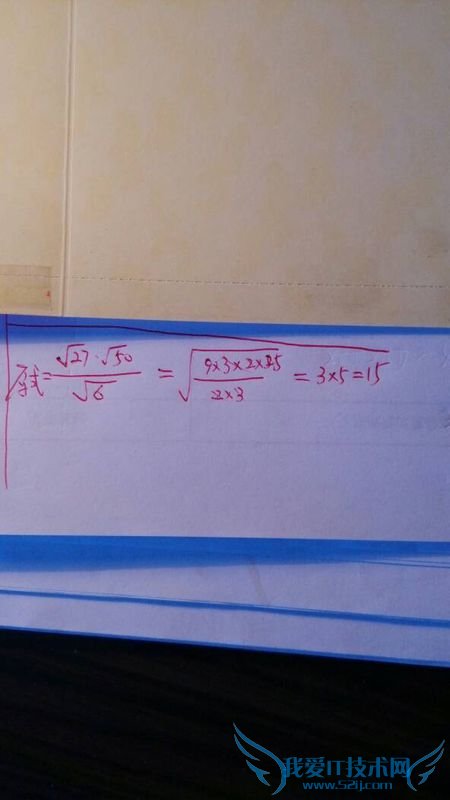 原式=√27·√50/√6=√(9×3×2×25/2×3)=3×5=15
我爱IT技术网
www.52ij.com